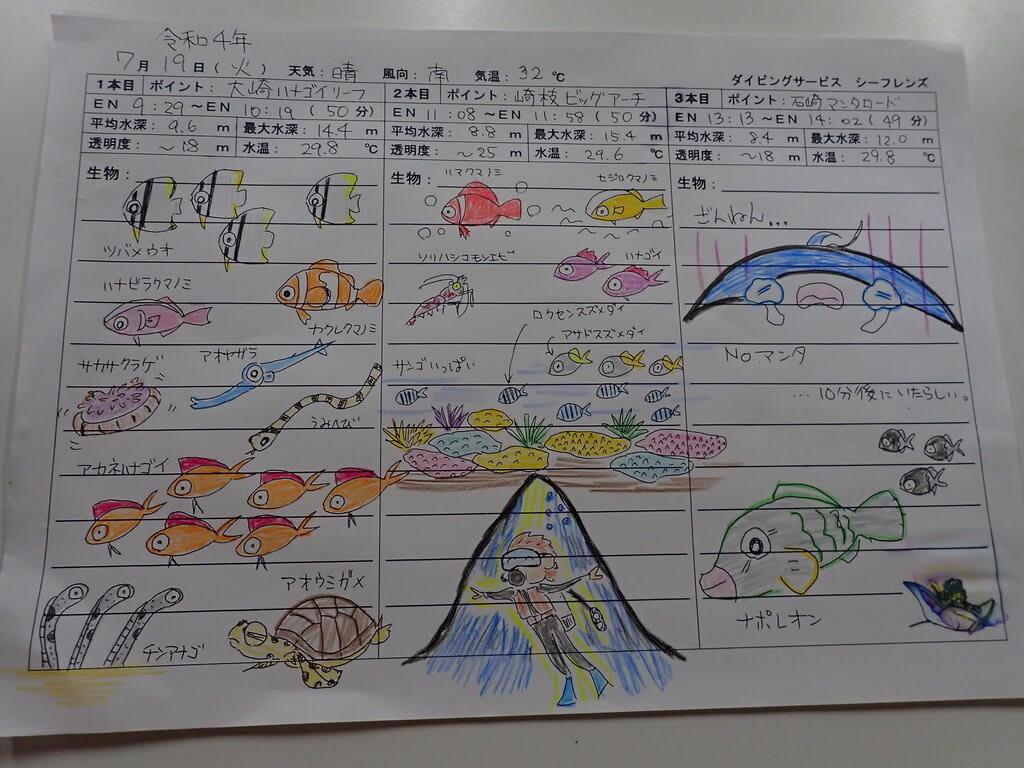 令和4年
7月19日(火) 天気:晴 風向:南 気温:32℃
ダイビングサービス シーフレンズ
1本目 ポイント:大崎ハナゴイリーフ
EN 9:29~EN 10:19(50分)
平均水深:9.6 m 最大水深:14.4 m
透明度:~18 m 水温:29.8 ℃
生物:
ツバメウオ
ハナビラクマノミ
カクレクマノミ
サカサクラゲ
アオヤガラ
うみへび
アカネハナゴイ
アオウミガメ
チンアナゴ
2本目 ポイント:崎枝ビッグアーチ
EN 11:08~EN 11:58(50分)
平均水深:8.8 m 最大水深:15.4 m
透明度:~25 m 水温:29.6 ℃
生物:
ハマクマノミ
セジロクマノミ
ソリハシコモンエビ
ハナゴイ
ロクセンスズメダイ
アサドスズメダイ
サンゴいっぱい
3本目 ポイント:石崎マンタロード
EN 13:13~EN 14:02(49分)
平均水深:8.4 m 最大水深:12.0 m
透明度:~18 m 水温:29.8 ℃
生物:
ざんねん...
No マンタ
... 10分後にいたらしい。
ナポレオン